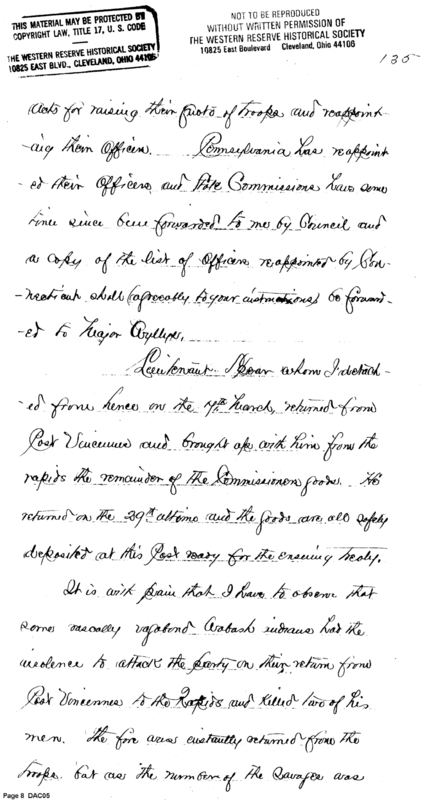 THIS MATERIAL MAY BE PROTECTED BY
COPYRIGHT LAW, TITLE 17, U. S. CODE
THE WESTERN RESERVE HISTORICAL SOCIETY
10825 EAST BLVD., CLEVELAND, OHIO 44106
NOT TO BE REPRODUCED
WITHOUT WRITTEN PERMISSION OF
THE WESTERN RESERVE HISTORICAL SOCIETY
10825 East Boulevard Cleveland, Ohio 44106
135
acts for raising their quota of troops and reappoint-
-ing their Officers. Pennsylvania has reappoint
ed their Officers and State Commissions have some
time since been forwarded to me by Council and
a copy of the list of Officers reappointed by Con-
-necticut shall (agreeably to your instructions) be forward-
-ed to Major Wyllys.
Lieutenant whom I detach-
-ed from hence on the 7th March, returned from
Post Vincennes and brought up with him from the
rapids the remainder of the Commissioners goods. He
returned on the 29th ultimo and the goods are all safely
deposited at this Post ready for the ensuing treaty.
It is with pain that I have to observe that
some rascally vagabond Wabash indians had the
insolence to attack the party on their return from
Post Vincennes to the Rapids and killed two of his
men. The fire was instantly returned from the
troops. but as the number of the savages was
Page 8 DAC05